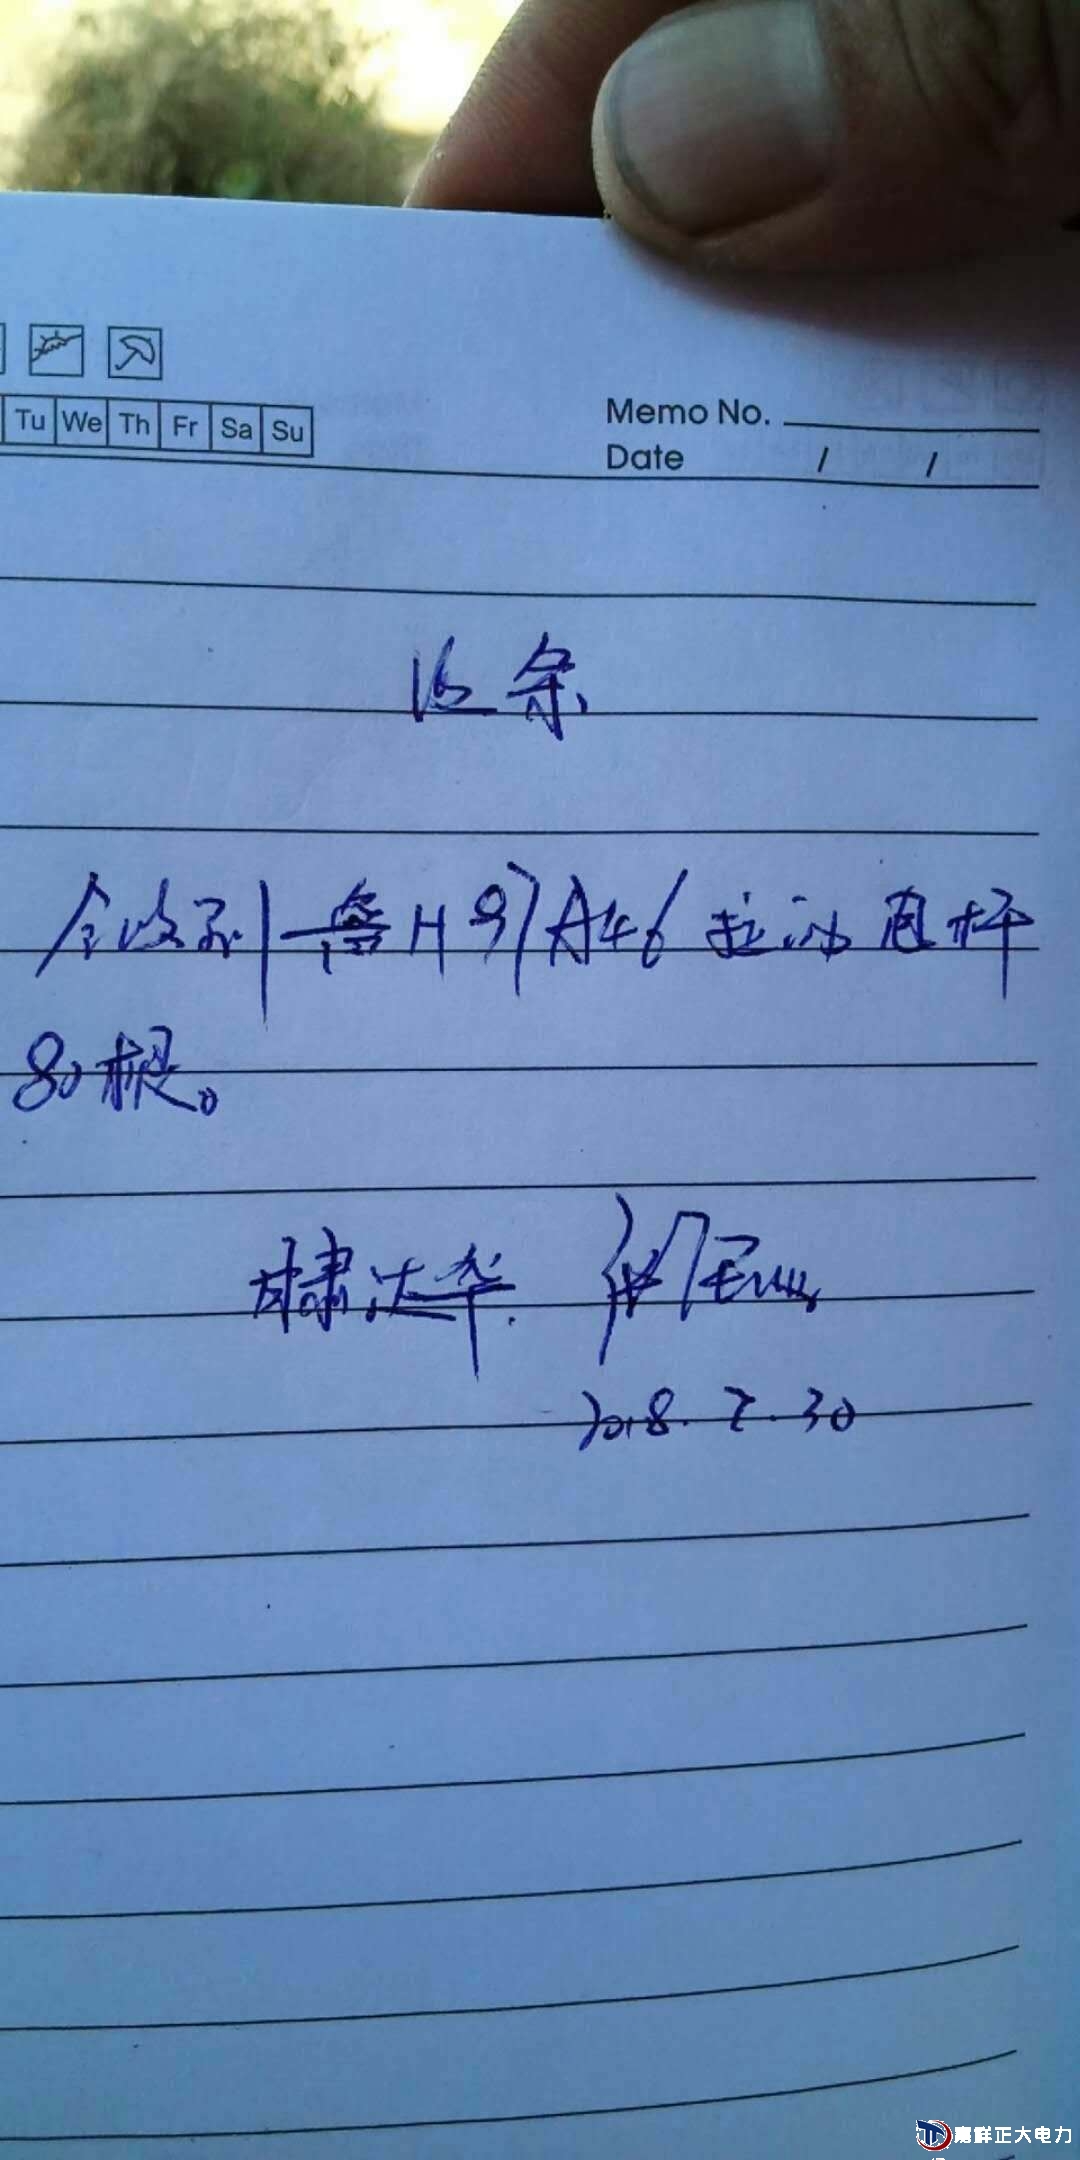 Tu We Th Fr Sa Su
Memo No.
Date / /
收条
今收到鲁H97A46拉油电杆
80根。
甘肃达华
2018.7.30
嘉祥正大电力